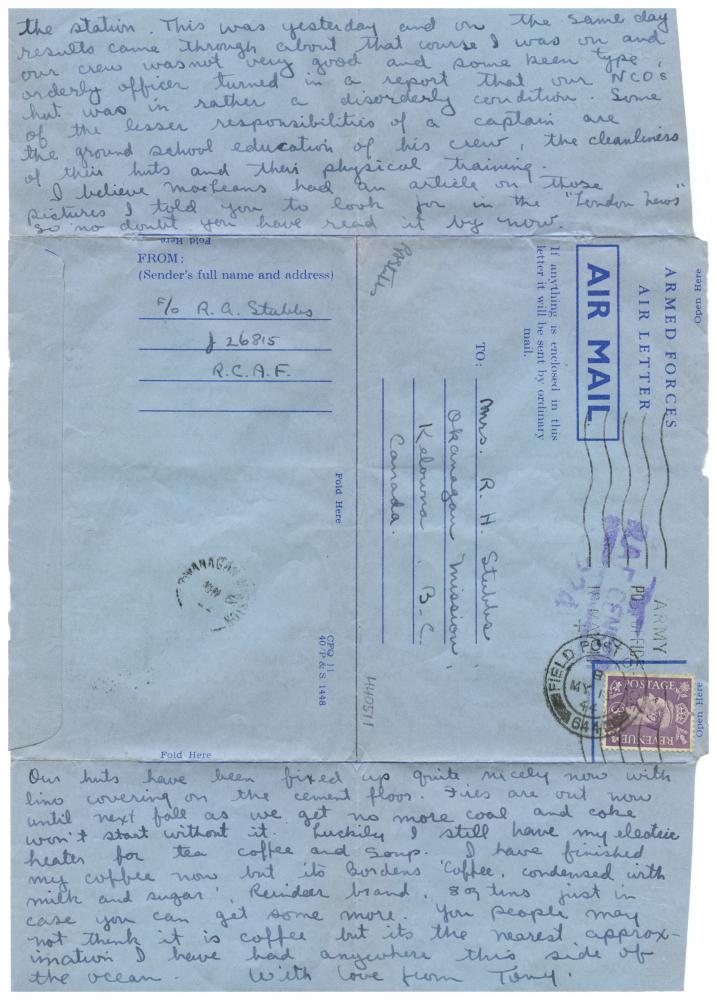 the station. This was yesterday and on the same day
results came through about that course I was on and
our crew was not very good and some keen type,
orderly officer turned in a report that our NCOs
hut was in rather a disorderly condition. Some
of the lesser responsibilities of a captain are
the ground school education of his crew, the cleanliness
of their huts and their physical training.
I believe MacLeans had an article on those
pictures I told you to look for in the "London News"
so no doubt you have read it by now.
Fold Here
FROM:
(Sender's full name and address)
F/O R. A. Stubbs
J 26815
R.C.A.F.
Fold Here
OKANAGAN MISSION
CPQ 11
40/P & S 1448
Fold Here
Open Here
ARMED FORCES
AIR LETTER
AIR MAIL
If anything is enclosed in this
letter it will be sent by ordinary
mail.
TO:
Mrs. R. H. Stubbs
Okanagan Mission,
Kelowna, B-C.
Canada.
440511
ARMY
POST OFFICE
FIELD POST
MY
44
644
POSTAGE
REVENUE
Open Here
Our huts have been fixed up quite nicely now with
lino covering on the cement floor. Fires are out now
until next fall as we get no more coal and coke
won't start without it. Luckily I still have my electric
heater for tea coffee and soup. I have finished
my coffee now but its Bordens 'Coffee, condensed with
milk and sugar', Reindeer brand, 8 oz tins just in
case you can get some more. You people may
not think it is coffee but its the nearest approx-
imation I have had anywhere this side of
the ocean. With love from Tony.